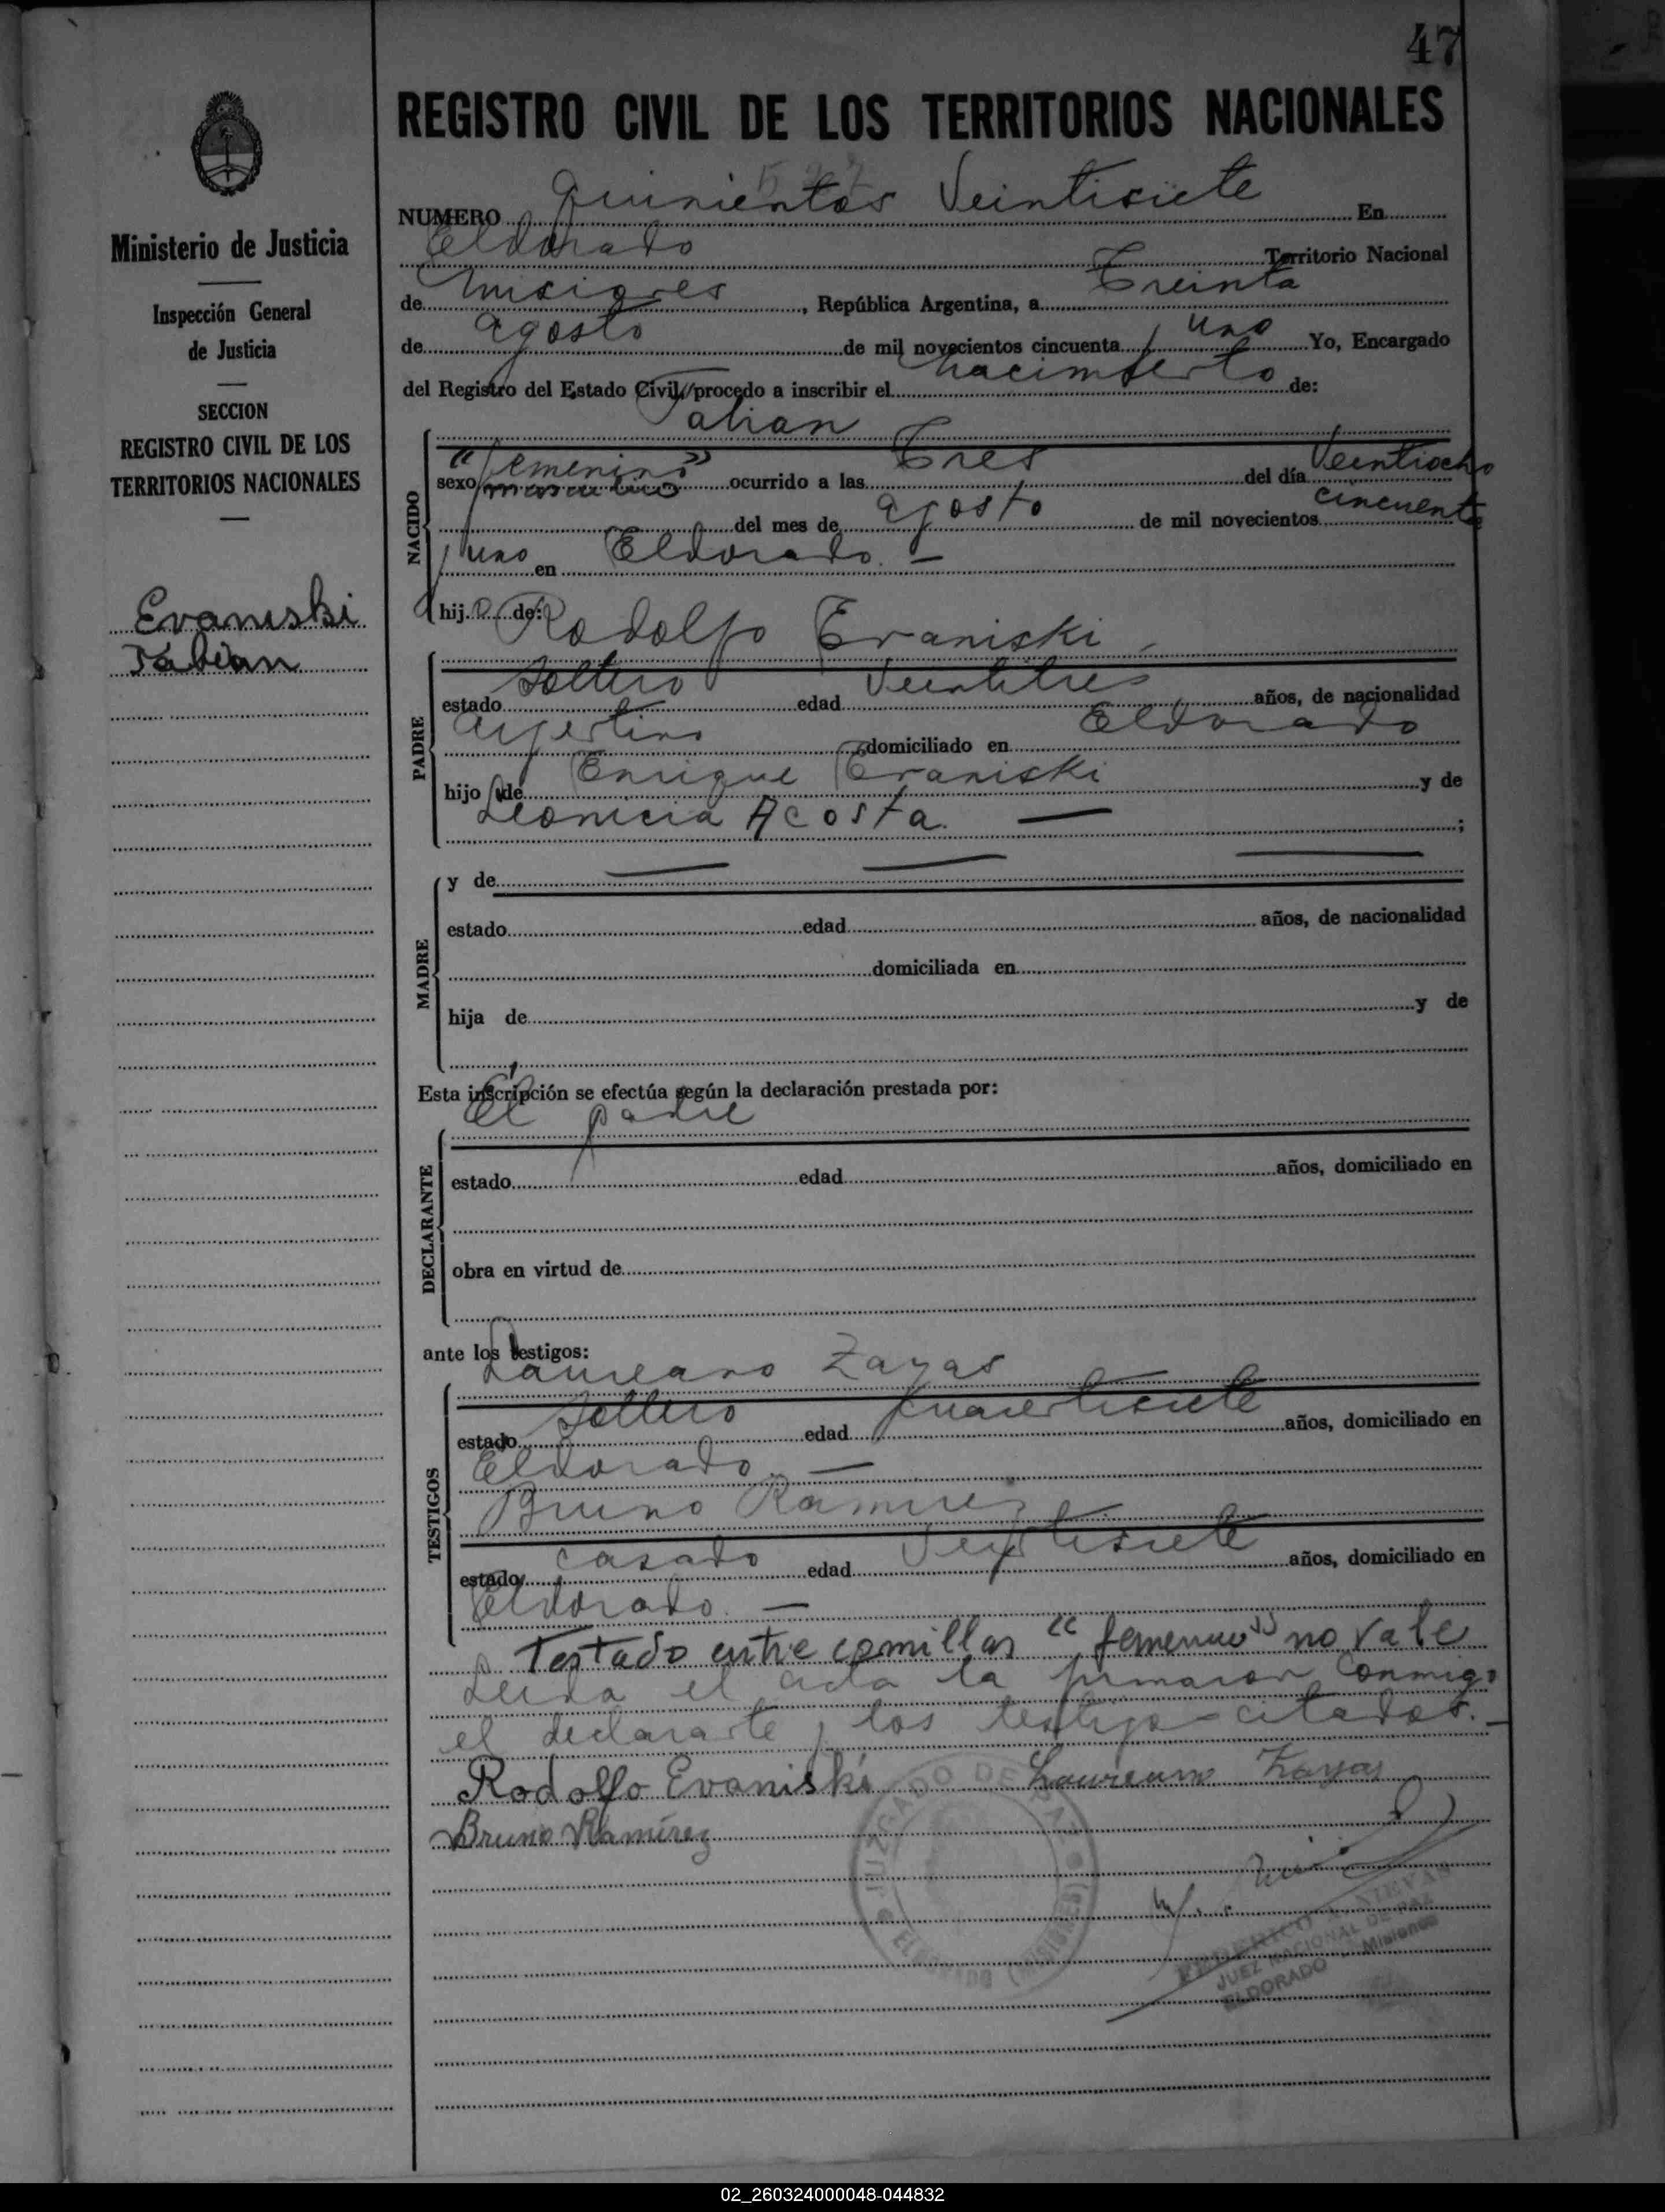 47
REGISTRO CIVIL DE LOS TERRITORIOS NACIONALES
Ministerio de Justicia
Inspección General
de Justicia
SECCION
REGISTRO CIVIL DE LOS
TERRITORIOS NACIONALES
Evaniski
Fabian
527
NUMERO Quinientos Veintisiete En
Eldorado Territorio Nacional
de Misiones, República Argentina, a Treinta
de agosto de mil novecientos cincuenta y uno Yo, Encargado
del Registro del Estado Civil, procedo a inscribir el nacimiento de:
Fabian
NACIDO
sexo "femenino" masculino ocurrido a las Tres del día Veintiocho
del mes de agosto de mil novecientos cincuenta
y uno en Eldorado. —
hijo de: Rodolfo Evaniski
PADRE
estado soltero edad Veintitres años, de nacionalidad
Argentino domiciliado en Eldorado
hijo de Enrique Evaniski y de
Leonicia Acosta. — ;
MADRE
y de — — —
estado edad años, de nacionalidad
domiciliada en
hija de y de
Esta inscripción se efectúa según la declaración prestada por:
El padre
DECLARANTE
estado edad años, domiciliado en
obra en virtud de
ante los testigos:
Laureano Zayas
TESTIGOS
estado soltero edad cuarentisiete años, domiciliado en
Eldorado. —
Bruno Ramirez
estado casado edad Veintisiete años, domiciliado en
Eldorado. —
Testado entre comillas "femenino" no vale
Leida el acta la firmaron conmigo
el declarante y los testigos citados. —
Rodolfo Evaniski Laureano Zayas
Bruno Ramírez
JUZGADO DE PAZ
ELDORADO (MISIONES)
FEDERICO NIEVAS
JUEZ NACIONAL DE PAZ
ELDORADO Misiones
02_260324000048-044832